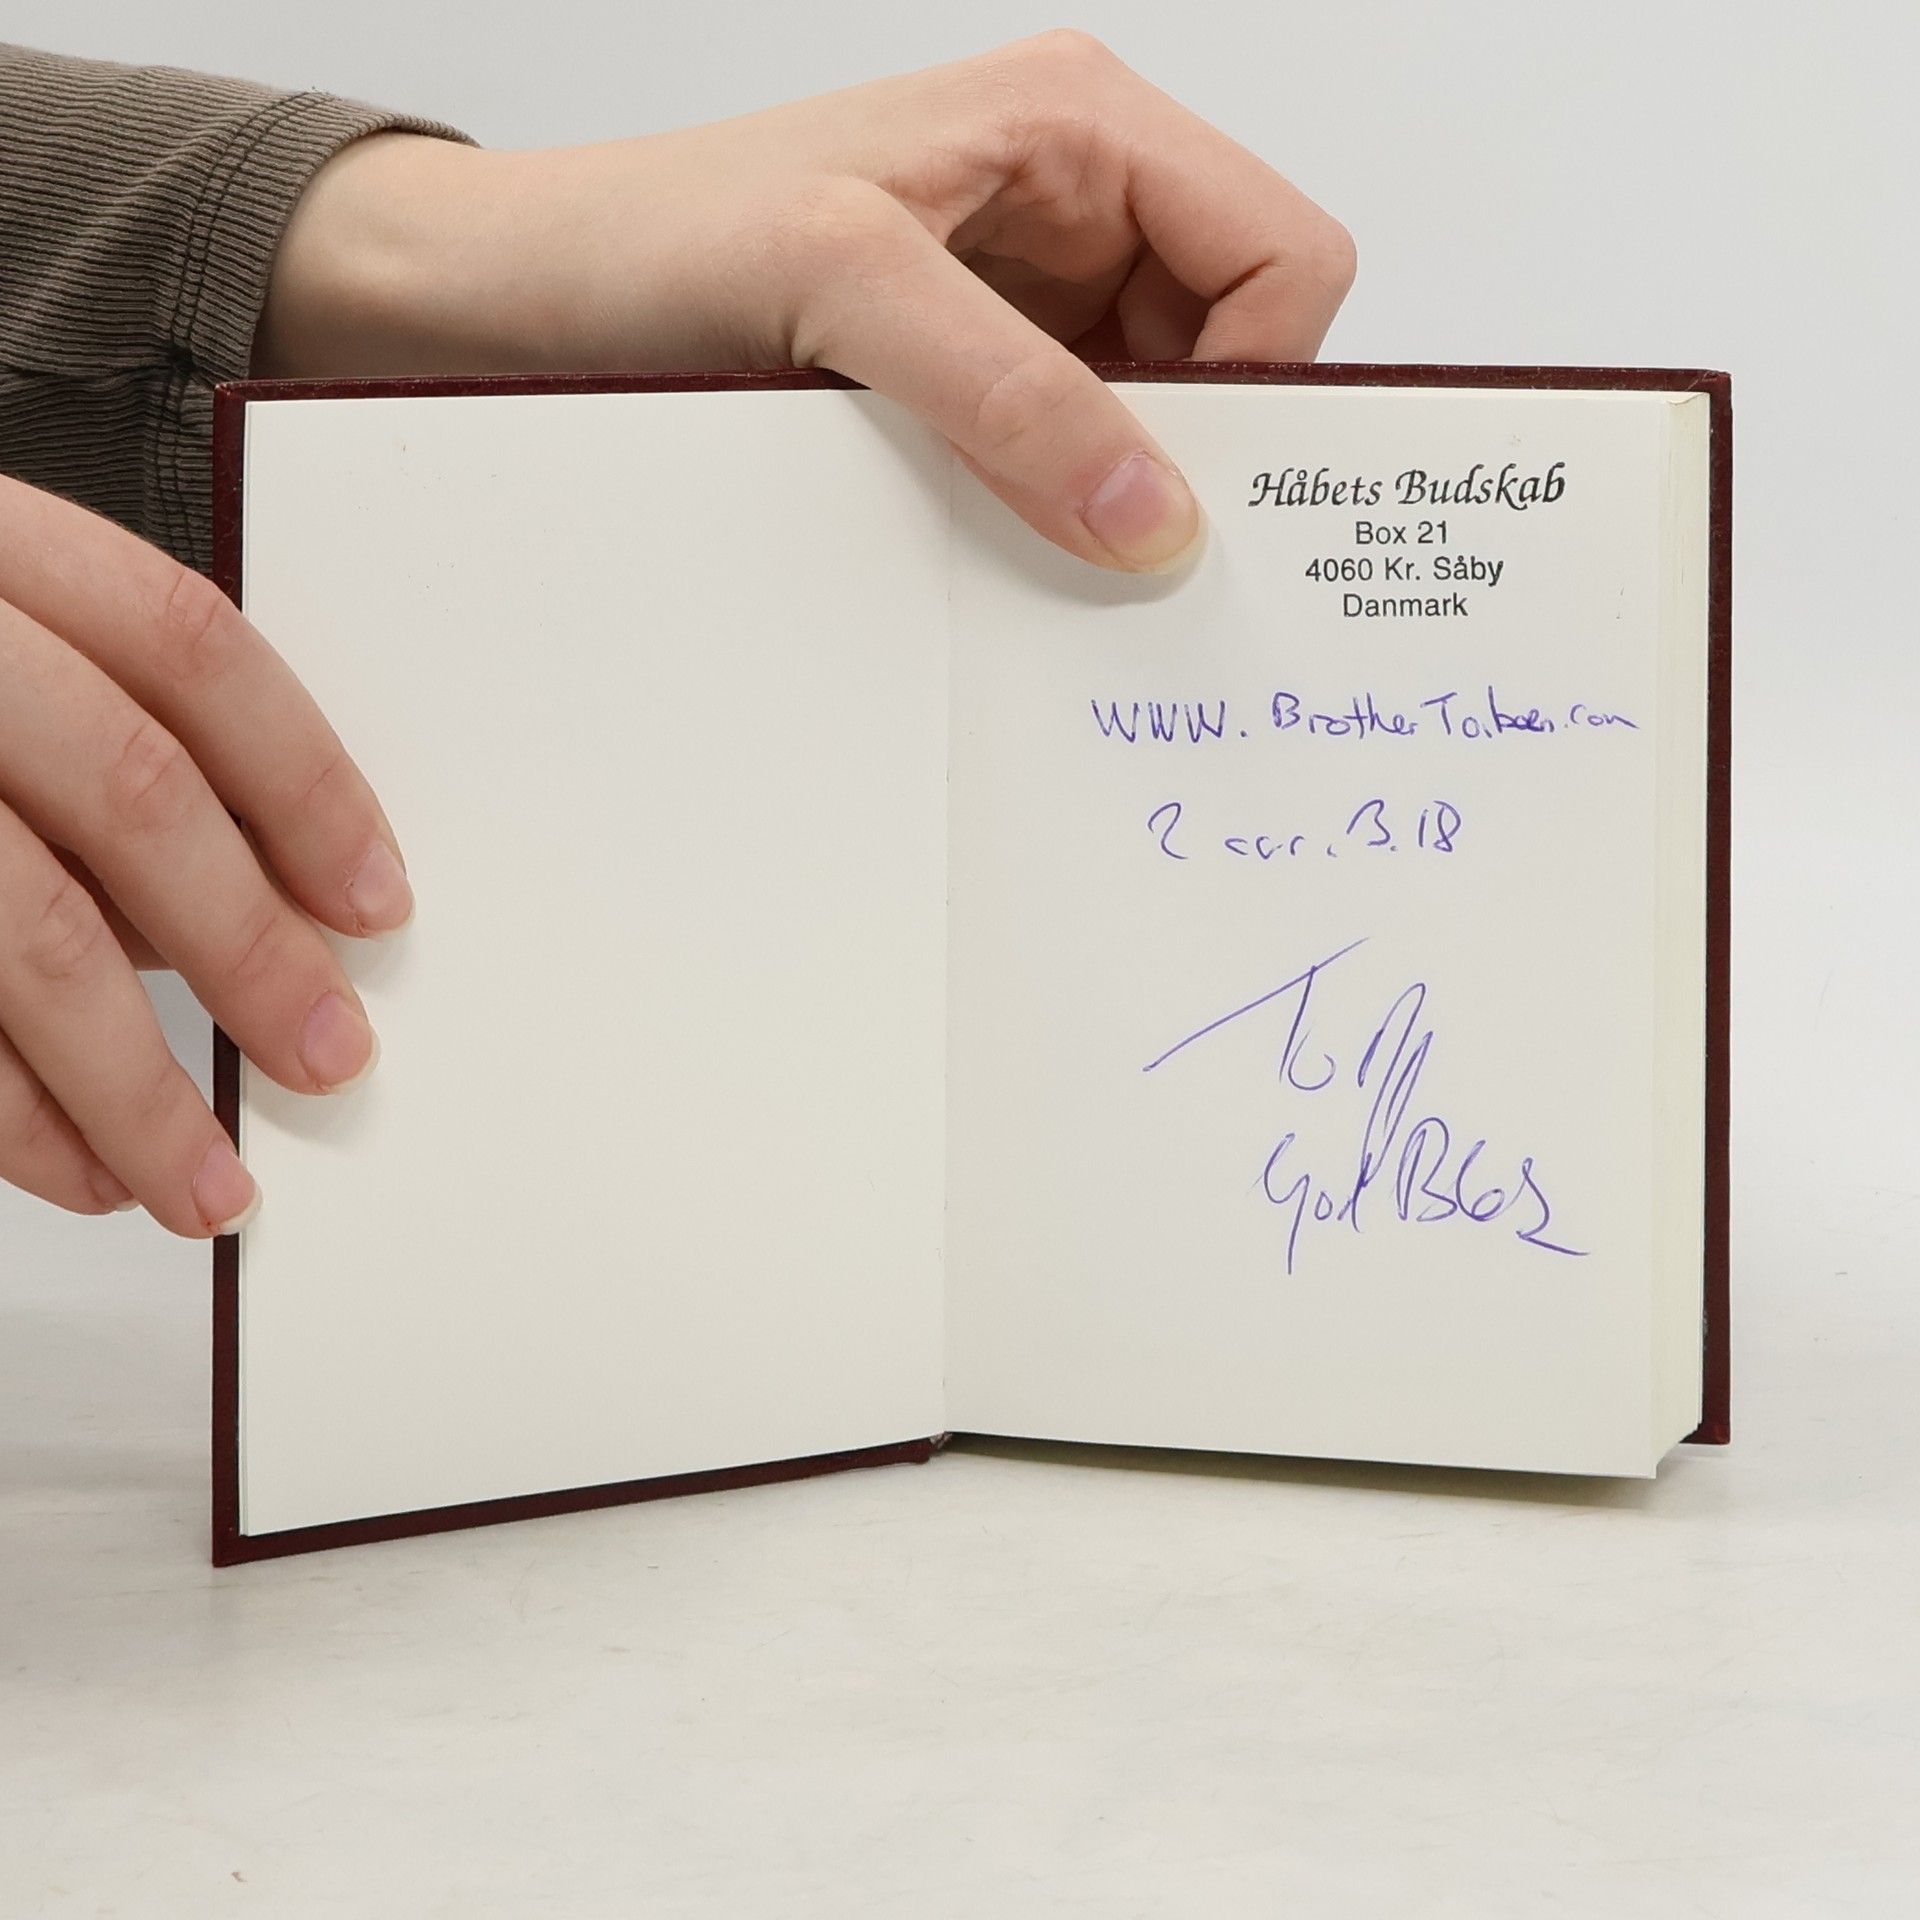 Håbets Budskab
Box 21
4060 Kr. Såby
Danmark
www. Brother Torben.com
2 cor. 3. 18
To
God Bless